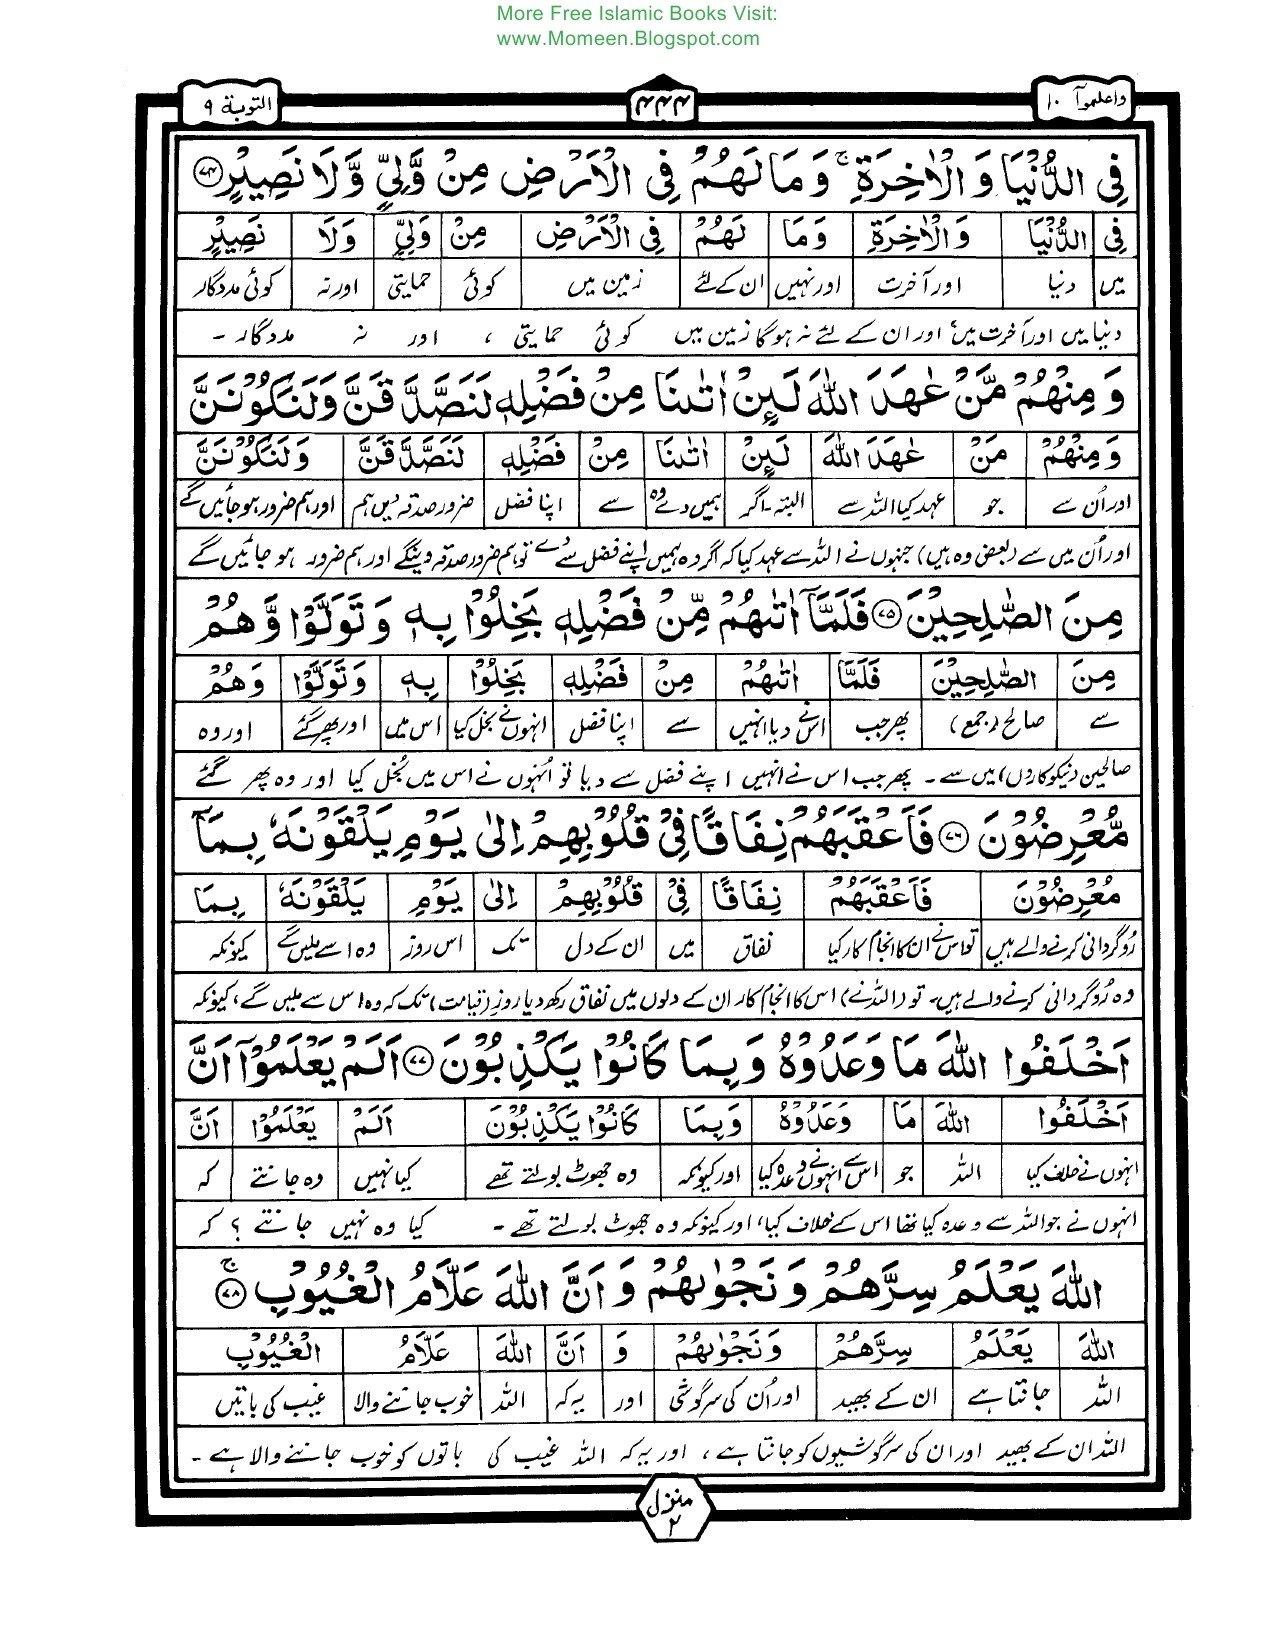 More Free Islamic Books Visit:
www.Momeen.Blogspot.com
واعلموآ ١٠
۴۴۴
التوبة ٩
فِي الدُّنْيَا وَالْاٰخِرَةِ ۚ وَمَا لَهُمْ فِي الْاَرْضِ مِنْ وَّلِيٍّ وَّلَا نَصِيْرٍ ﴿٧٤﴾
فِي الدُّنْيَا وَالْاٰخِرَةِ وَمَا لَهُمْ فِي الْاَرْضِ مِنْ وَّلِيٍّ وَلَا نَصِيْرٍ
میں دنیا اور آخرت اور نہیں ان کے لئے زمین میں کوئی حمایتی اور نہ کوئی مددگار
دنیا میں اور آخرت میں، اور ان کے لئے نہ ہوگا زمین میں کوئی حمایتی ، اور نہ مددگار ۔
وَمِنْهُمْ مَّنْ عٰهَدَ اللّٰهَ لَىِٕنْ اٰتٰىنَا مِنْ فَضْلِهٖ لَنَصَّدَّقَنَّ وَلَنَكُوْنَنَّ
وَمِنْهُمْ مَنْ عٰهَدَ اللّٰهَ لَىِٕنْ اٰتٰىنَا مِنْ فَضْلِهٖ لَنَصَّدَّقَنَّ وَلَنَكُوْنَنَّ
اور اُن سے جو عہد کیا اللہ سے البتہ۔اگر ہمیں دے وہ سے اپنا فضل ضرور صدقہ دیں ہم اور ہم ضرور ہو جائیں گے
اور اُن میں سے (بعض وہ ہیں) جنہوں نے اللہ سے عہد کیا کہ اگر وہ ہمیں اپنے فضل سے دے تو ہم ضرور صدقہ دینگے اور ہم ضرور ہو جائیں گے
مِنَ الصّٰلِحِيْنَ ﴿٧٥﴾ فَلَمَّآ اٰتٰىهُمْ مِّنْ فَضْلِهٖ بَخِلُوْا بِهٖ وَتَوَلَّوْا وَّهُمْ
مِنَ الصّٰلِحِيْنَ فَلَمَّا اٰتٰىهُمْ مِنْ فَضْلِهٖ بَخِلُوْا بِهٖ وَتَوَلَّوْا وَهُمْ
سے صالح (جمع) پھر جب اس نے دیا انہیں سے اپنا فضل انہوں نے بخل کیا اس میں اور پھر گئے اور وہ
صالحین (نیکوکاروں) میں سے ۔ پھر جب اس نے انہیں اپنے فضل سے دیا تو اُنہوں نے اس میں بُخل کیا اور وہ پھر گئے
مُّعْرِضُوْنَ ﴿٧٦﴾ فَاَعْقَبَهُمْ نِفَاقًا فِيْ قُلُوْبِهِمْ اِلٰى يَوْمِ يَلْقَوْنَهٗ بِمَآ
مُعْرِضُوْنَ فَاَعْقَبَهُمْ نِفَاقًا فِيْ قُلُوْبِهِمْ اِلٰى يَوْمِ يَلْقَوْنَهٗ بِمَا
روگردانی کرنے والے ہیں تو اس نے ان کا انجام کار کیا نفاق میں ان کے دل تک اس روز وہ اسے ملیں گے کیونکہ
وہ رُوگردانی کرنے والے ہیں۔ تو (اللہ نے) اس کا انجام کار ان کے دلوں میں نفاق رکھ دیا روزِ (قیامت) تک کہ وہ اس سے ملیں گے، کیونکہ
اَخْلَفُوا اللّٰهَ مَا وَعَدُوْهُ وَبِمَا كَانُوْا يَكْذِبُوْنَ ﴿٧٧﴾ اَلَمْ يَعْلَمُوْٓا اَنَّ
اَخْلَفُوا اللّٰهَ مَا وَعَدُوْهُ وَبِمَا كَانُوْا يَكْذِبُوْنَ اَلَمْ يَعْلَمُوْا اَنَّ
انہوں نے خلاف کیا اللہ جو اس سے انہوں نے وعدہ کیا اور کیونکہ وہ جھوٹ بولتے تھے کیا نہیں وہ جانتے کہ
انہوں نے جو اللہ سے وعدہ کیا تھا اس کے خلاف کیا، اور کیونکہ وہ جھوٹ بولتے تھے ۔ کیا وہ نہیں جانتے ؟ کہ
اللّٰهَ يَعْلَمُ سِرَّهُمْ وَنَجْوٰىهُمْ وَاَنَّ اللّٰهَ عَلَّامُ الْغُيُوْبِ ۚ ﴿٧٨﴾
اللّٰهَ يَعْلَمُ سِرَّهُمْ وَنَجْوٰىهُمْ وَ اَنَّ اللّٰهَ عَلَّامُ الْغُيُوْبِ
اللہ جانتا ہے ان کے بھید اور اُن کی سرگوشی اور یہ کہ اللہ خوب جاننے والا غیب کی باتیں
اللہ ان کے بھید اور ان کی سرگوشیوں کو جانتا ہے ، اور یہ کہ اللہ غیب کی باتوں کو خوب جاننے والا ہے ۔
منزل
۲